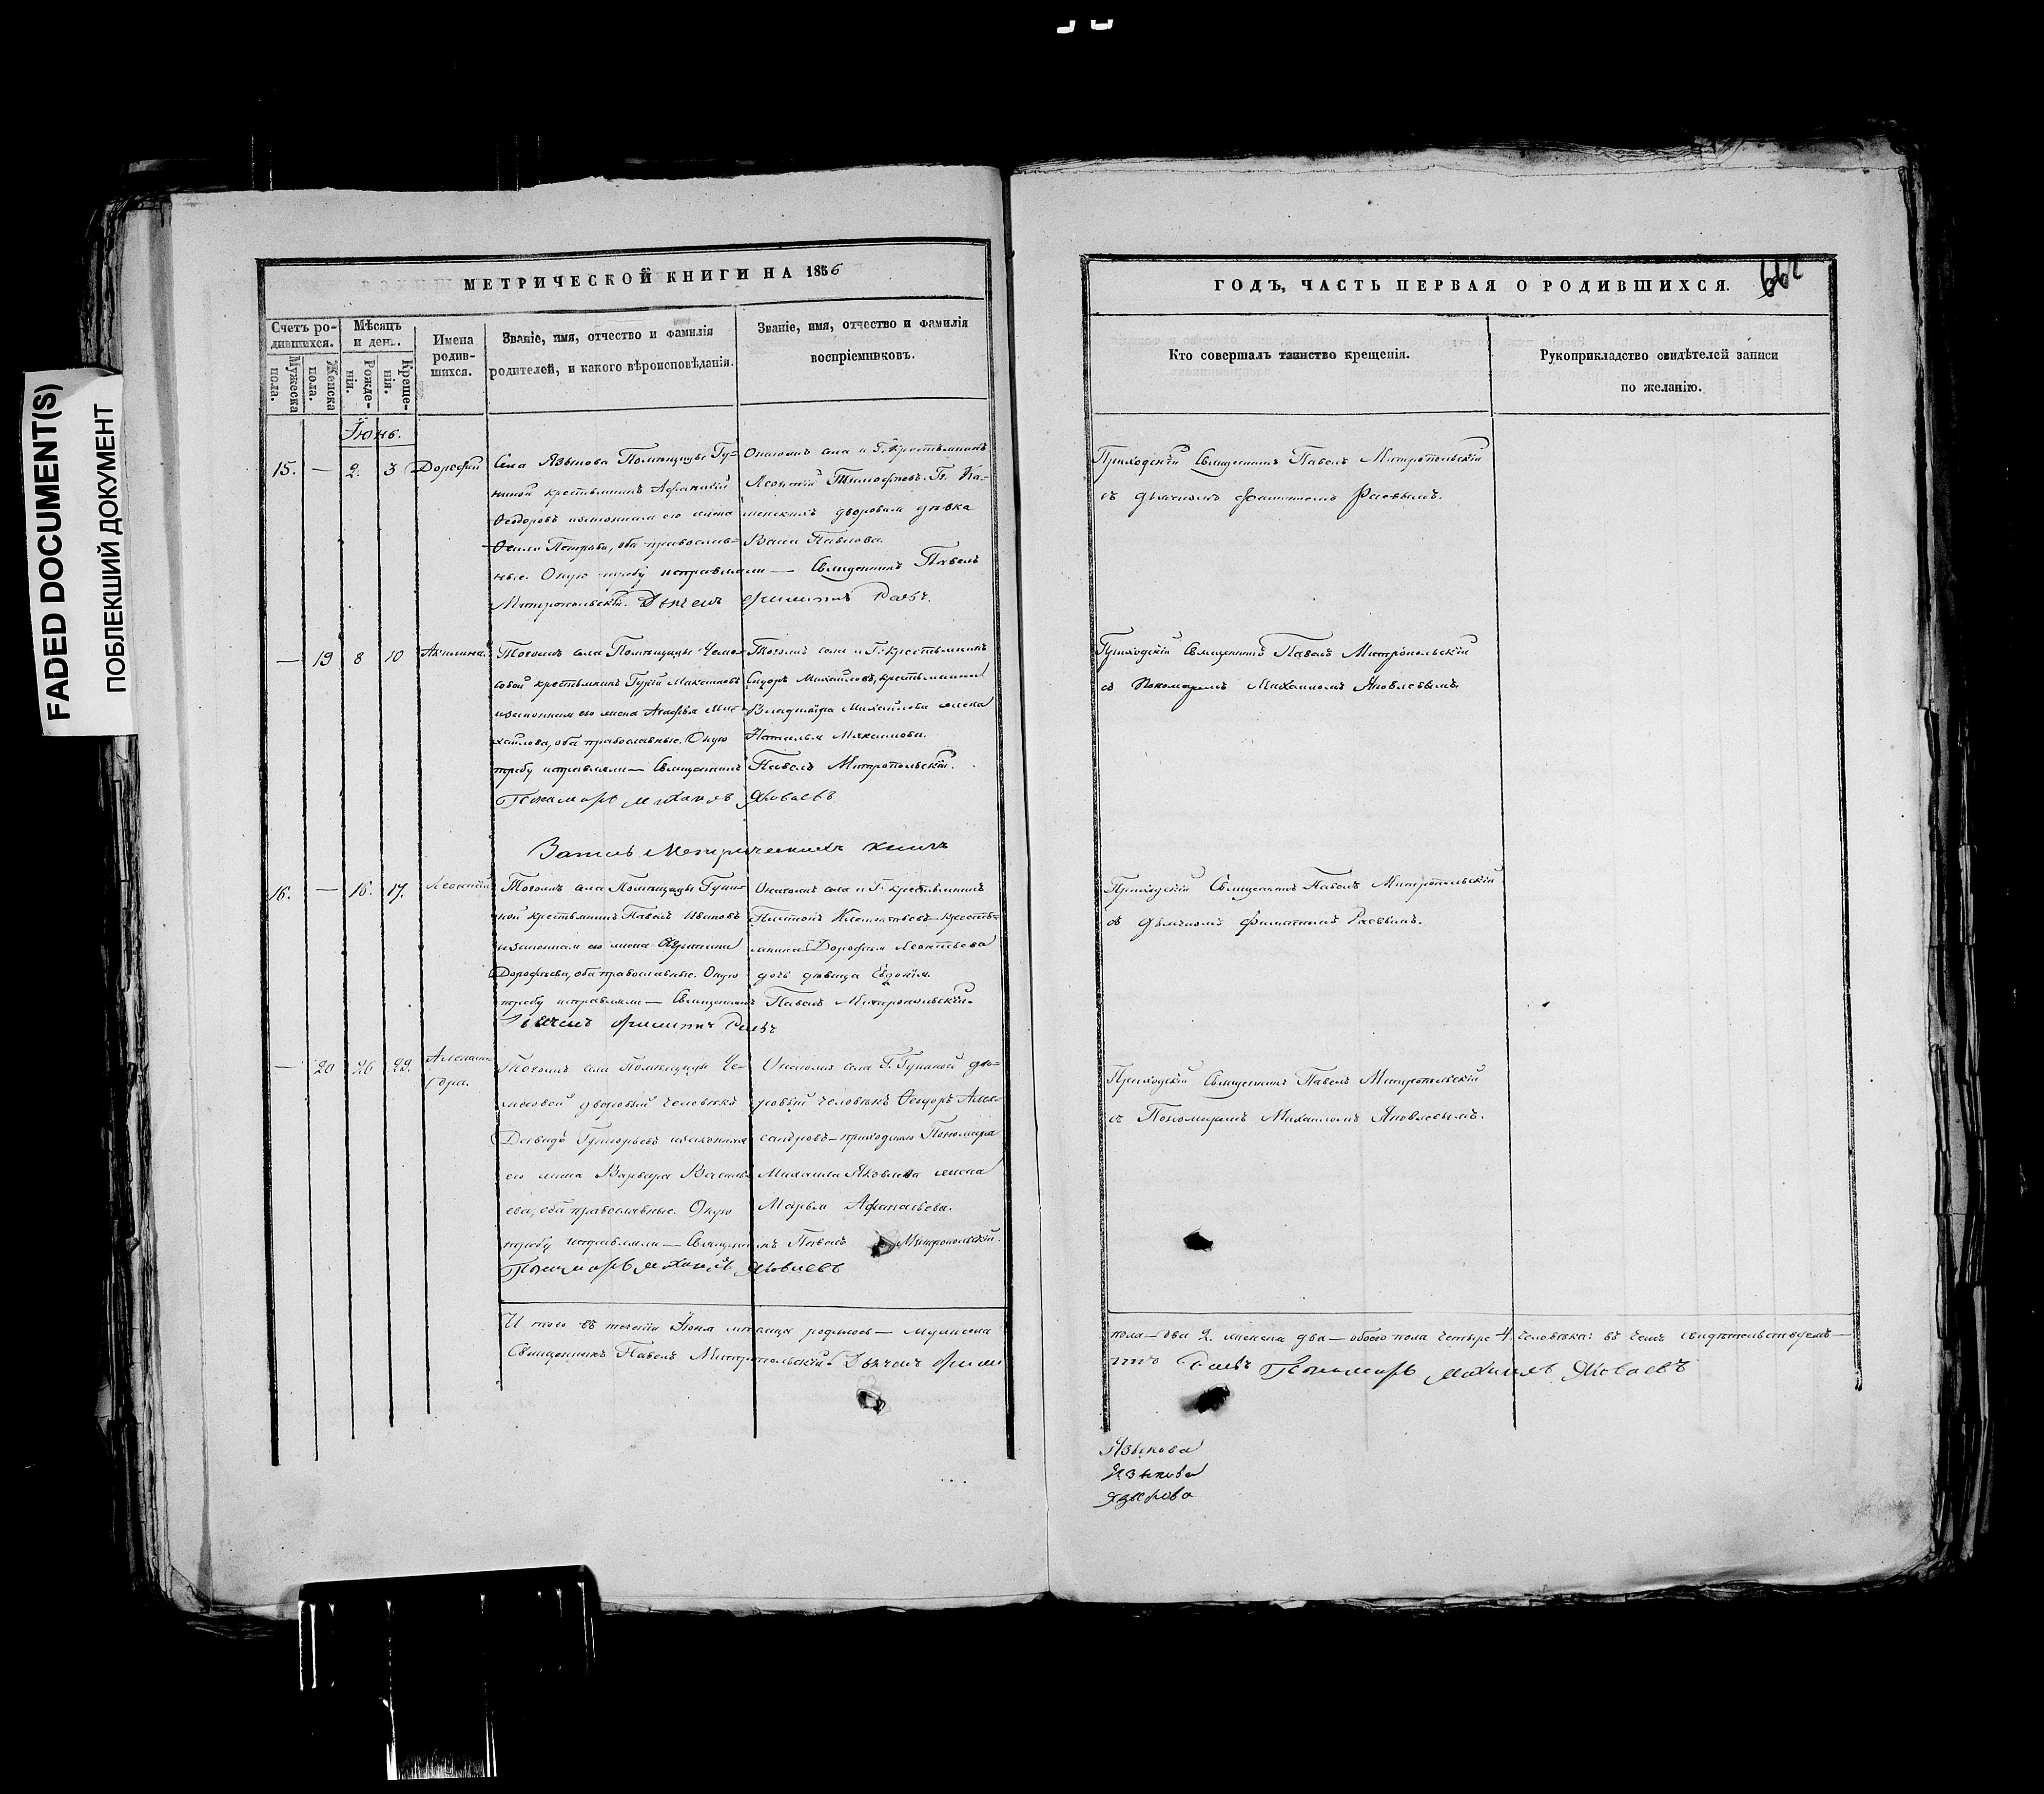 FADED DOCUMENT(S)
ПОБЛЕКШИЙ ДОКУМЕНТ
МЕТРИЧЕСКОЙ КНИГИ НА 1856
Счетъ ро-
дившихся.
Мужеска
пола.
Женска
пола.
Мѣсяцъ
и день.
Рожде-
нія.
Креще-
нія.
Имена
родив-
шихся.
Званіе, имя, отчество и фамилія
родителей, и какого вѣроисповѣданія.
Званіе, имя, отчество и фамилія
воспріемниковъ.
Іюнь.
15. — 2. 3 Дорофей
Села Языкова Помѣщицы Гу-
ниной крестьянинъ Афанасій
Ѳеодоровъ и законная его жена
Петрова, оба православ-
ные. Оную требу исправляли — Священникъ Павелъ
Митропольскій. Дьячекъ Филиппъ Раевъ.
Онагожъ села и Г. крестьянинъ
Леонтій Тимофѣевъ. Г. Ка-
менскихъ дворовая дѣвка
Павлова.
— 19 8 10 Акилина.
Тогожъ села Помѣщицы
крестьянинъ Гурій Максимовъ
и законная его жена Агафья Ми-
хайлова, оба православные. Оную
требу исправляли — Священникъ Павелъ Митропольскій.
Пономарь Михаилъ Яковлевъ
Тогожъ села и Г. крестьянинъ
Сидоръ Михайловъ, крестьянина
Владиміра Михайлова жена
Наталья Максимова.
Запись Метрическихъ книгъ
16. — 16. 17. Леонтій
Тогожъ села Помѣщицы Гуни-
ной крестьянинъ Павелъ Ивановъ
и законная его жена
Дорофѣева, оба православные. Оную
требу исправляли — Священникъ Павелъ Митропольскій.
Дьячекъ Филиппъ Раевъ
Онагожъ села и Г. крестьянинъ
крестья-
нина Дорофея Леонтьева
дочь дѣвица Евдокія.
— 20 26 29. Алексан-
дра.
Тогожъ села Помѣщицы Че-
дворовый человѣкъ
Давидъ Григорьевъ и законная
его жена Варвара Василь-
ева, оба православные. Оную
требу исправляли — Священникъ Павелъ Митропольскій.
Пономарь Михаилъ Яковлевъ
Онагожъ села Г. Гуниной дво-
ровый человѣкъ Ѳеодоръ Алек-
сандровъ — приходскаго Пономаря
Михаила Яковлева жена
Марья Афанасьева.
И того въ теченіи Іюня мѣсяца родилось — мужеска
Священникъ Павелъ Митропольскій. Дьячекъ Фили
ГОДЪ, ЧАСТЬ ПЕРВАЯ О РОДИВШИХСЯ.
662
Кто совершалъ таинство крещенія.
Рукоприкладство свидѣтелей записи
по желанію.
Приходскій Священникъ Павелъ Митропольскій
съ дьячкомъ Филиппомъ Раевымъ.
Приходскій Священникъ Павелъ Митропольскій
съ Пономаремъ Михаиломъ Яковлевымъ
Приходскій Священникъ Павелъ Митропольскій
съ дьячкомъ Филиппомъ Раевымъ.
Приходскій Священникъ Павелъ Митропольскій
съ Пономаремъ Михаиломъ Яковлевымъ.
пола — два 2. женска два — обоего пола четыре 4 человѣка: въ чемъ свидѣтельствуемъ —
ппъ Раевъ Пономарь Михаилъ Яковлевъ
Языкова
Языкова
Языкова